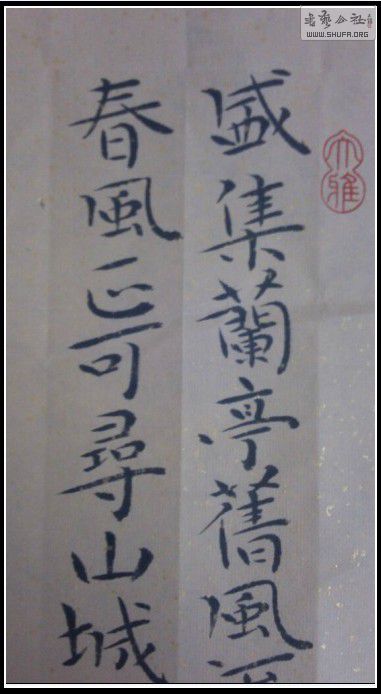 盛集蘭亭舊風
春風正可尋山城
大雅
書藝公社
WWW.SHUFA.ORG